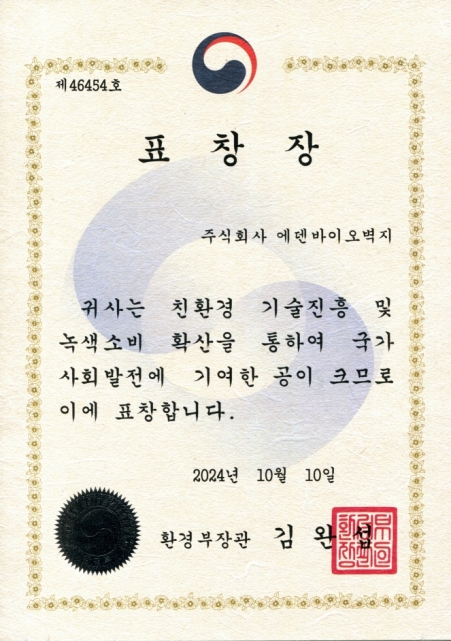 제 46454 호
표 창 장
주식회사 에덴바이오벽지
귀사는 친환경 기술진흥 및
녹색소비 확산을 통하여 국가
사회발전에 기여한 공이 크므로
이에 표창합니다.
2024년 10월 10일
환경부장관 김 완 섭